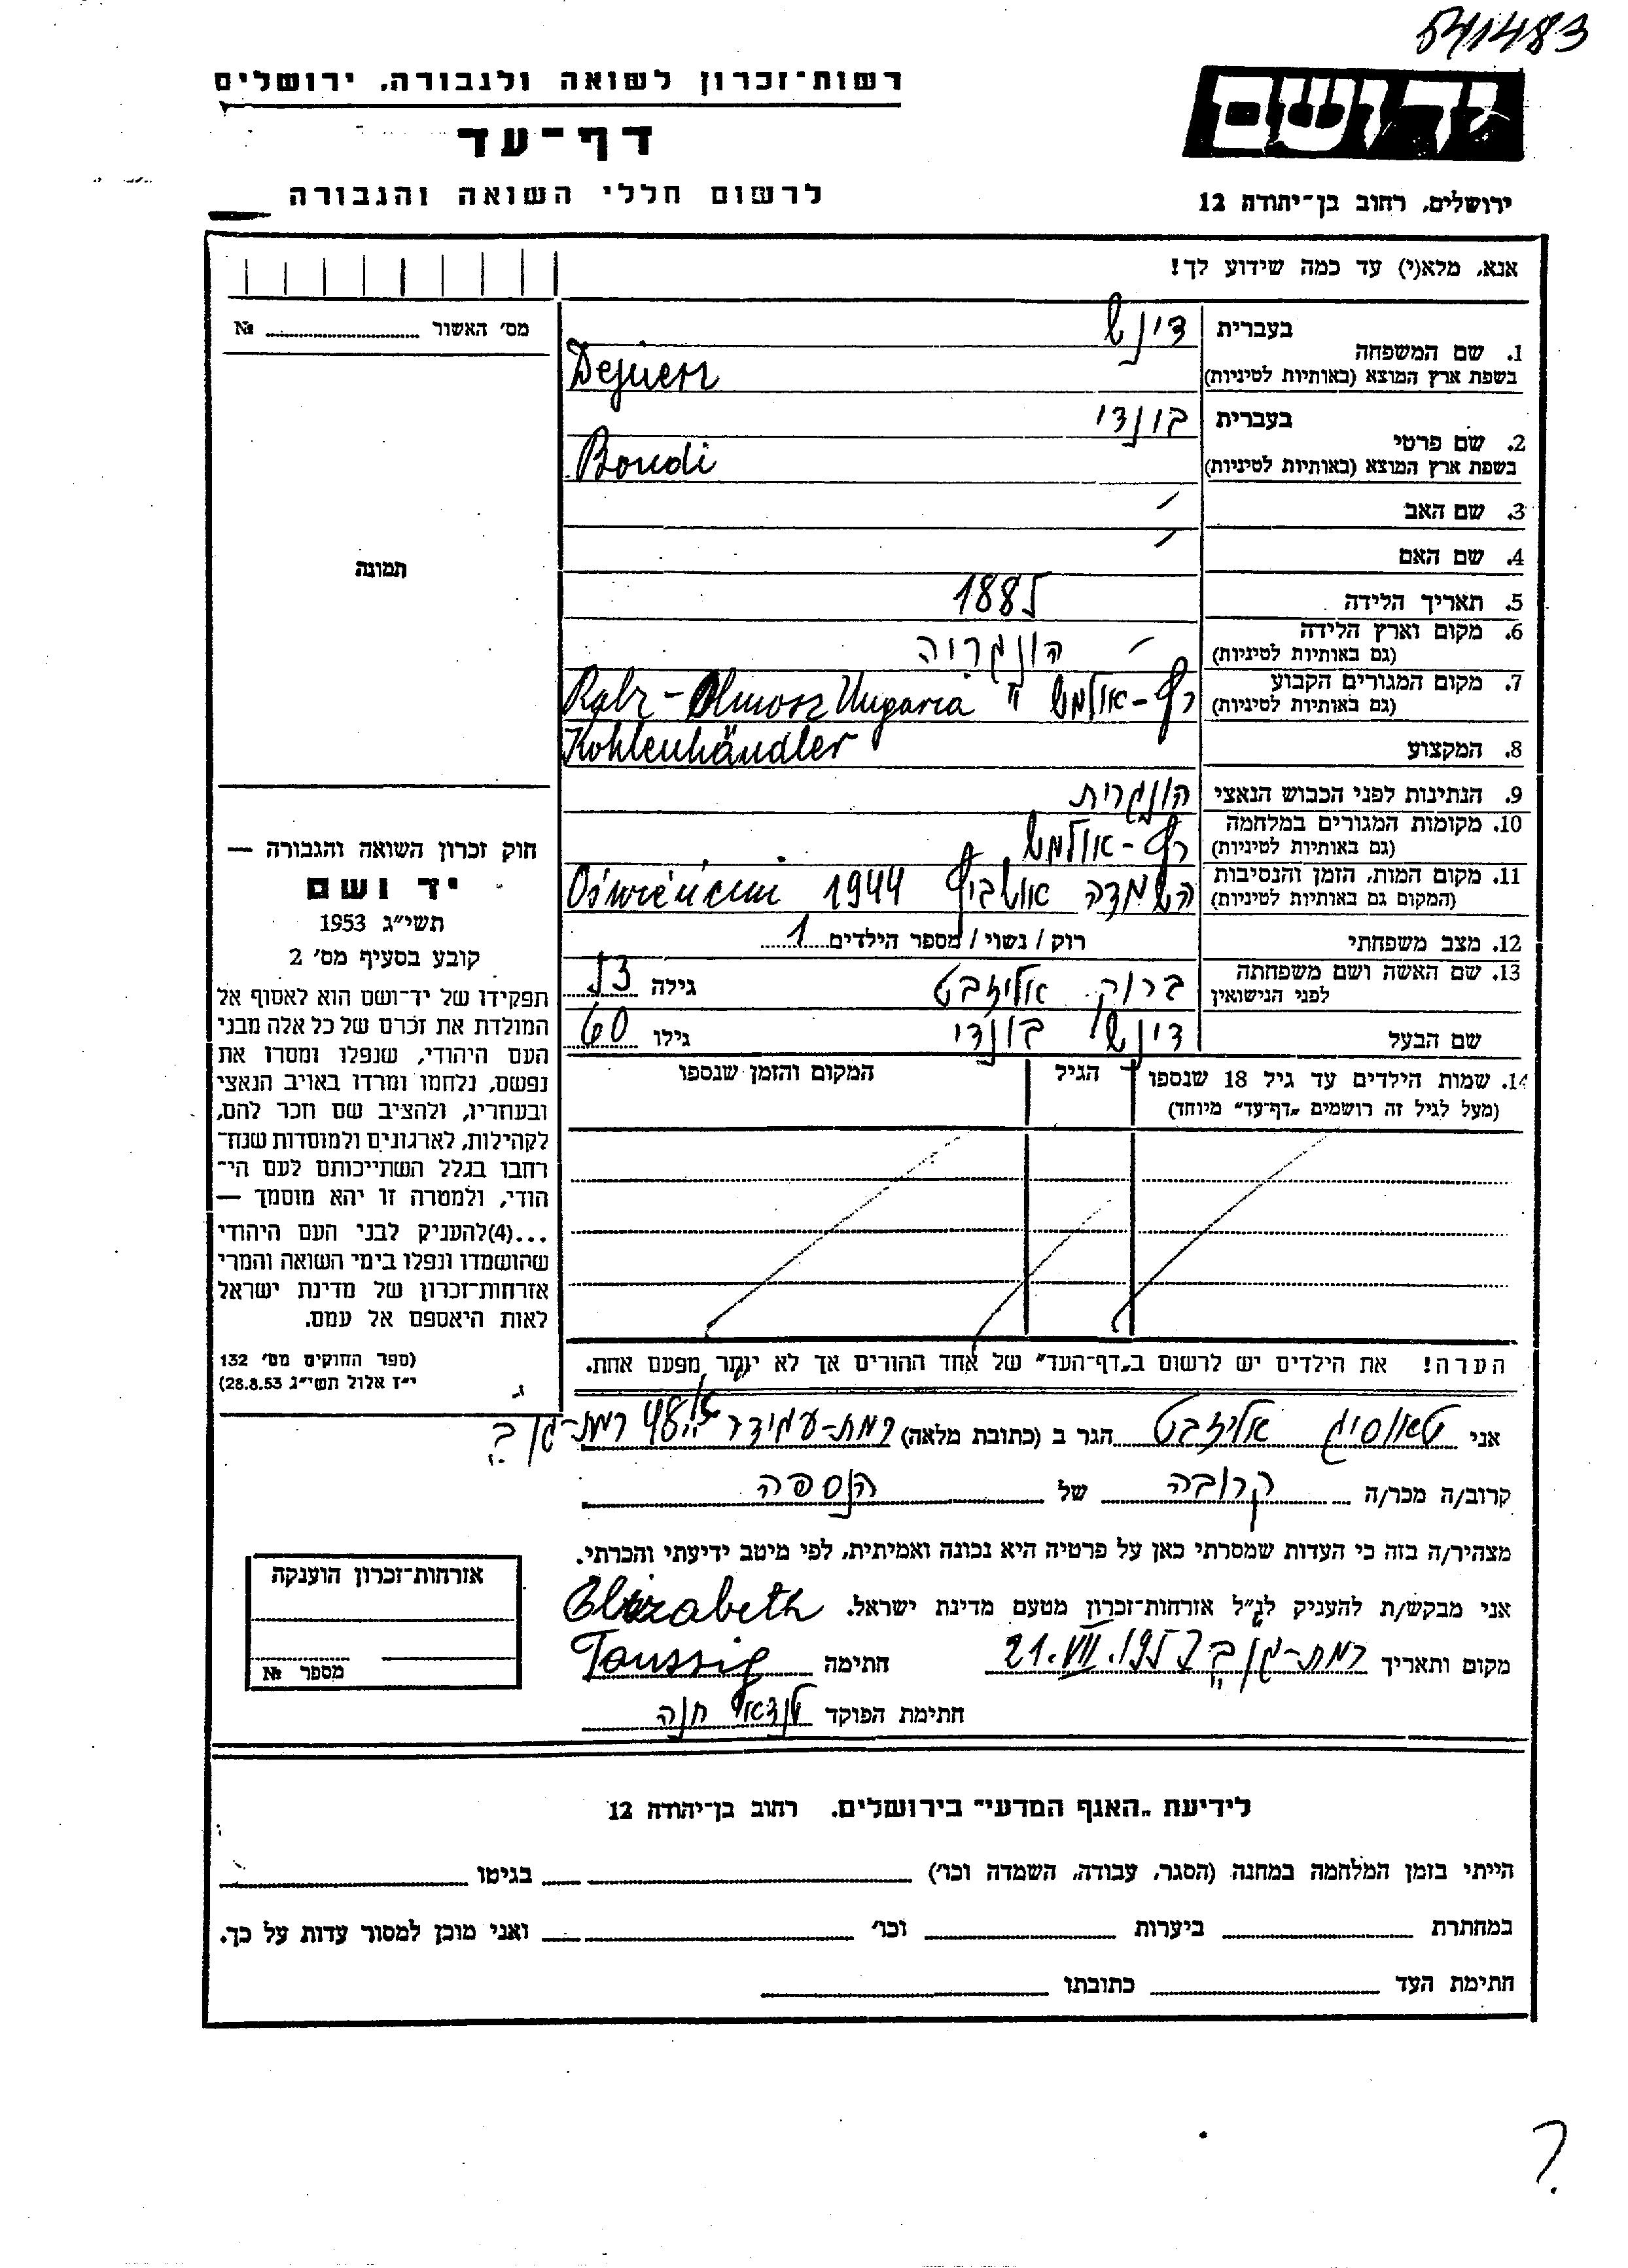 541483
רשות־זכרון לשואה ולגבורה, ירושלים
יד ושם
דף־עד
לרשום חללי השואה והגבורה
ירושלים, רחוב בן־יהודה 12
אנא, מלא(י) עד כמה שידוע לך!
מס' האשור № 
1. שם המשפחה
בעברית דינש
בשפת ארץ המוצא (באותיות לטיניות) Dejnesz
2. שם פרטי
בעברית בונדי
בשפת ארץ המוצא (באותיות לטיניות) Bondi
3. שם האב
4. שם האם
תמונה
5. תאריך הלידה 1885
6. מקום וארץ הלידה
(גם באותיות לטיניות) הונגריה
7. מקום המגורים הקבוע
(גם באותיות לטיניות) Ungaria
8. המקצוע Kohlenhändler
9. הנתינות לפני הכבוש הנאצי הונגרית
10. מקומות המגורים במלחמה
(גם באותיות לטיניות)
11. מקום המות, הזמן והנסיבות
(המקום גם באותיות לטיניות) השמדה אושביץ 1944 Oświęcim
12. מצב משפחתי רוק / נשוי / מספר הילדים 1
13. שם האשה ושם משפחתה
לפני הנישואין ברוק אליזבט גילה 53
שם הבעל דינש בונדי גילו 60
14. שמות הילדים עד גיל 18 שנספו הגיל המקום והזמן שנספו
(מעל לגיל זה רושמים „דף־עד" מיוחד)
הערה! את הילדים יש לרשום ב„דף־העד" של אחד ההורים אך לא יותר מפעם אחת.
חוק זכרון השואה והגבורה —
יד ושם
תשי״ג 1953
קובע בסעיף מס' 2
תפקידו של יד־ושם הוא לאסוף אל
המולדת את זכרם של כל אלה מבני
העם היהודי, שנפלו ומסרו את
נפשם, נלחמו ומרדו באויב הנאצי
ובעוזריו, ולהציב שם וזכר להם,
לקהילות, לארגונים ולמוסדות שנח־
רבו בגלל השתייכותם לעם הי־
הודי, ולמטרה זו יהא מוסמך —
...(4)להעניק לבני העם היהודי
שהושמדו ונפלו בימי השואה והמרי
אזרחות־זכרון של מדינת ישראל
לאות היאספם אל עמם.
(ספר החוקים מס' 132
י״ז אלול תשי״ג 28.8.53)
אני טאוסיג אליזבט הגר ב (כתובת מלאה) רמת-עמידר 48 רמת-גן
קרוב/ה מכר/ה קרובה של הנספה
מצהיר/ה בזה כי העדות שמסרתי כאן על פרטיה היא נכונה ואמיתית, לפי מיטב ידיעתי והכרתי.
אני מבקש/ת להעניק לנ״ל אזרחות־זכרון מטעם מדינת ישראל. Elizabeth
מקום ותאריך רמת-גן חתימה Taussig
חתימת הפוקד חנה
אזרחות־זכרון הוענקה
מספר №
לידיעת „האגף המדעי" בירושלים. רחוב בן־יהודה 12
הייתי בזמן המלחמה במחנה (הסגר, עבודה, השמדה וכו') בגיטו
במחתרת ביערות וכו' ואני מוכן למסור עדות על כך.
חתימת העד כתובתו
?